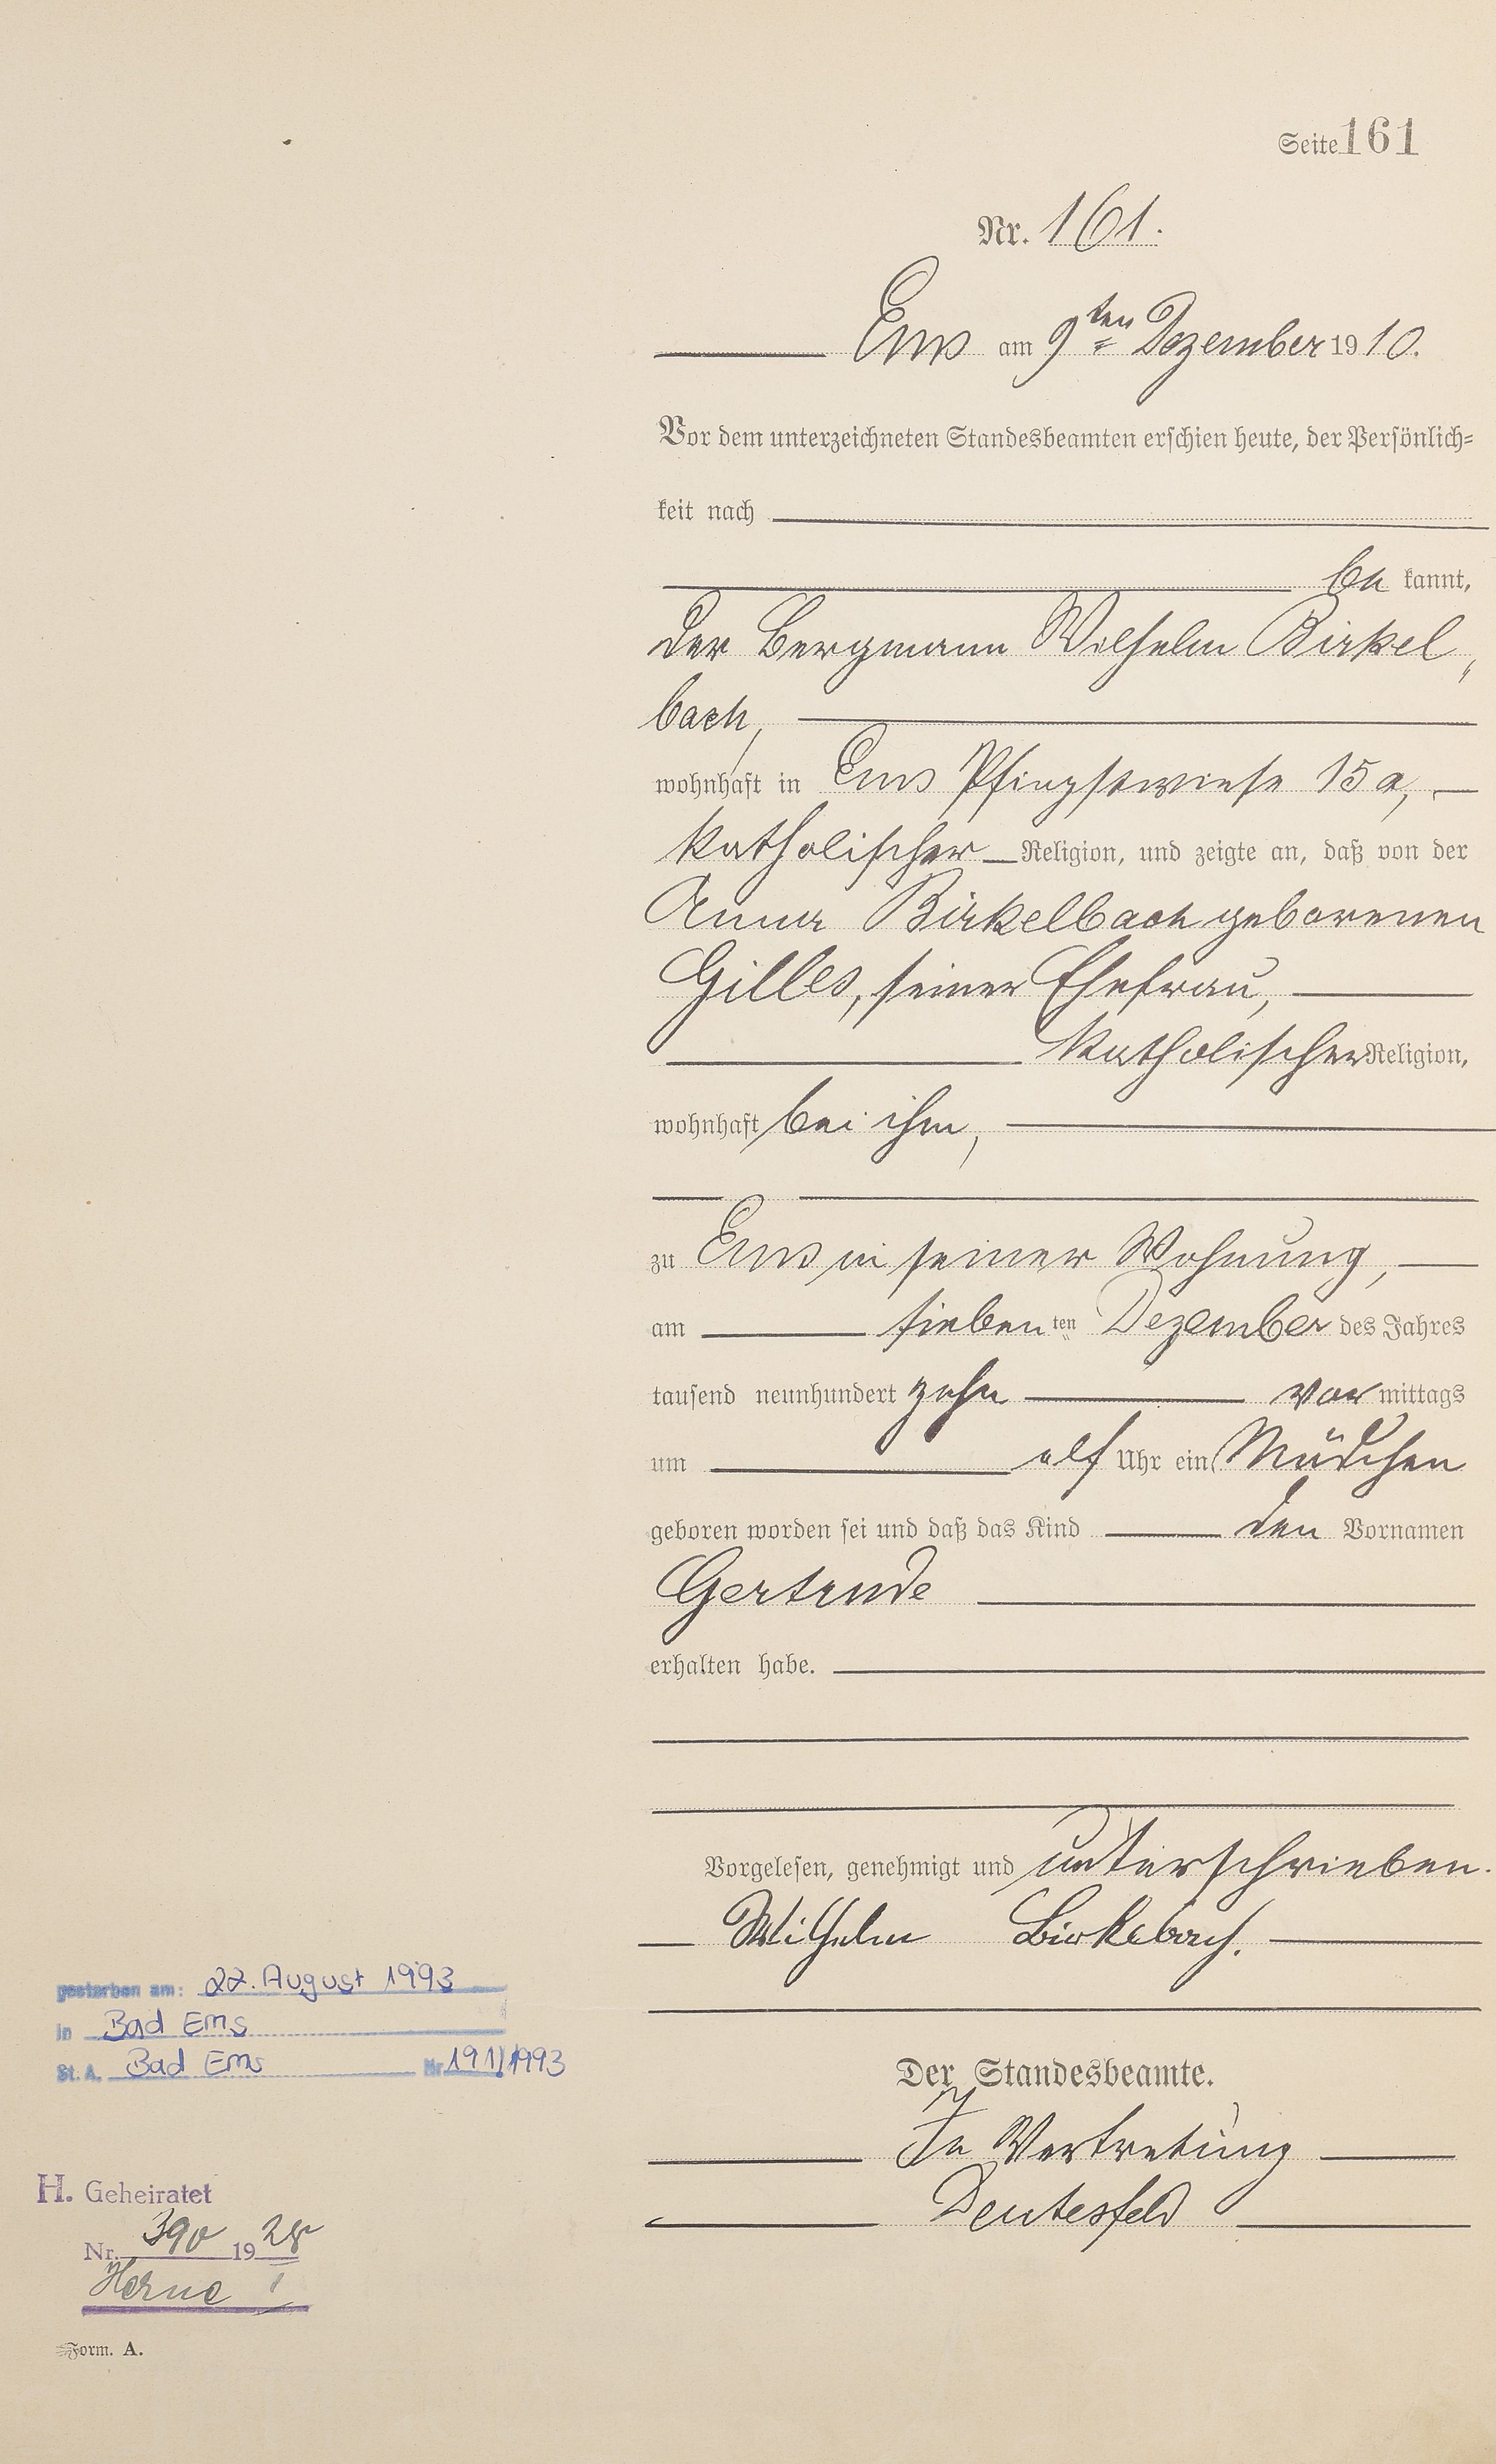 Seite 161
Nr. 161.
Ems am 9ten Dezember 1910.
Vor dem unterzeichneten Standesbeamten erschien heute, der Persönlich-
keit nach
be kannt,
der Bergmann Wilhelm Birkel„
bach,
wohnhaft in Ems Pfingstwiese 15a,
katholischer Religion, und zeigte an, daß von der
Anna Birkelbach geborenen
Gilles, seiner Ehefrau,
katholischer Religion,
wohnhaft bei ihm,
zu Ems in seiner Wohnung,
am sieben ten Dezember des Jahres
tausend neunhundert zehn vor mittags
um elf Uhr ein Mädchen
geboren worden sei und daß das Kind den Vornamen
Gertrude
erhalten habe.
Vorgelesen, genehmigt und unterschrieben.
Wilhelm Birkelbach.
Der Standesbeamte.
In Vertretung
Deutesfeld
gestorben am: 22. August 1993
in Bad Ems
St. A. Bad Ems Nr 191/1993
H. Geheiratet
Nr. 390 1928
Herne I
Form. A.